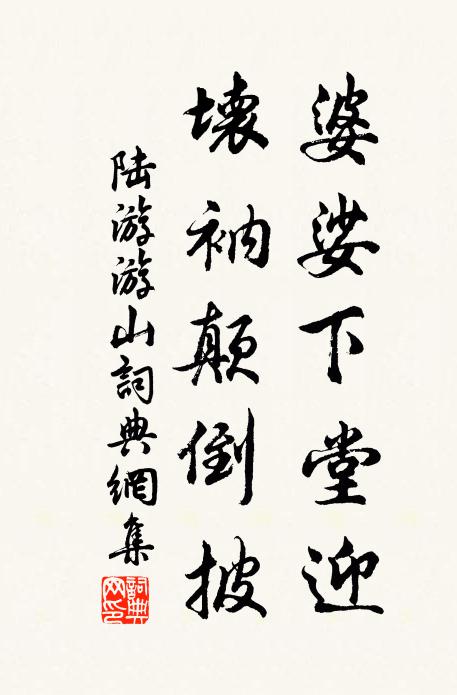 婆娑下堂迎
壞衲顛倒披
陸游游山詞典網集
詞典网印